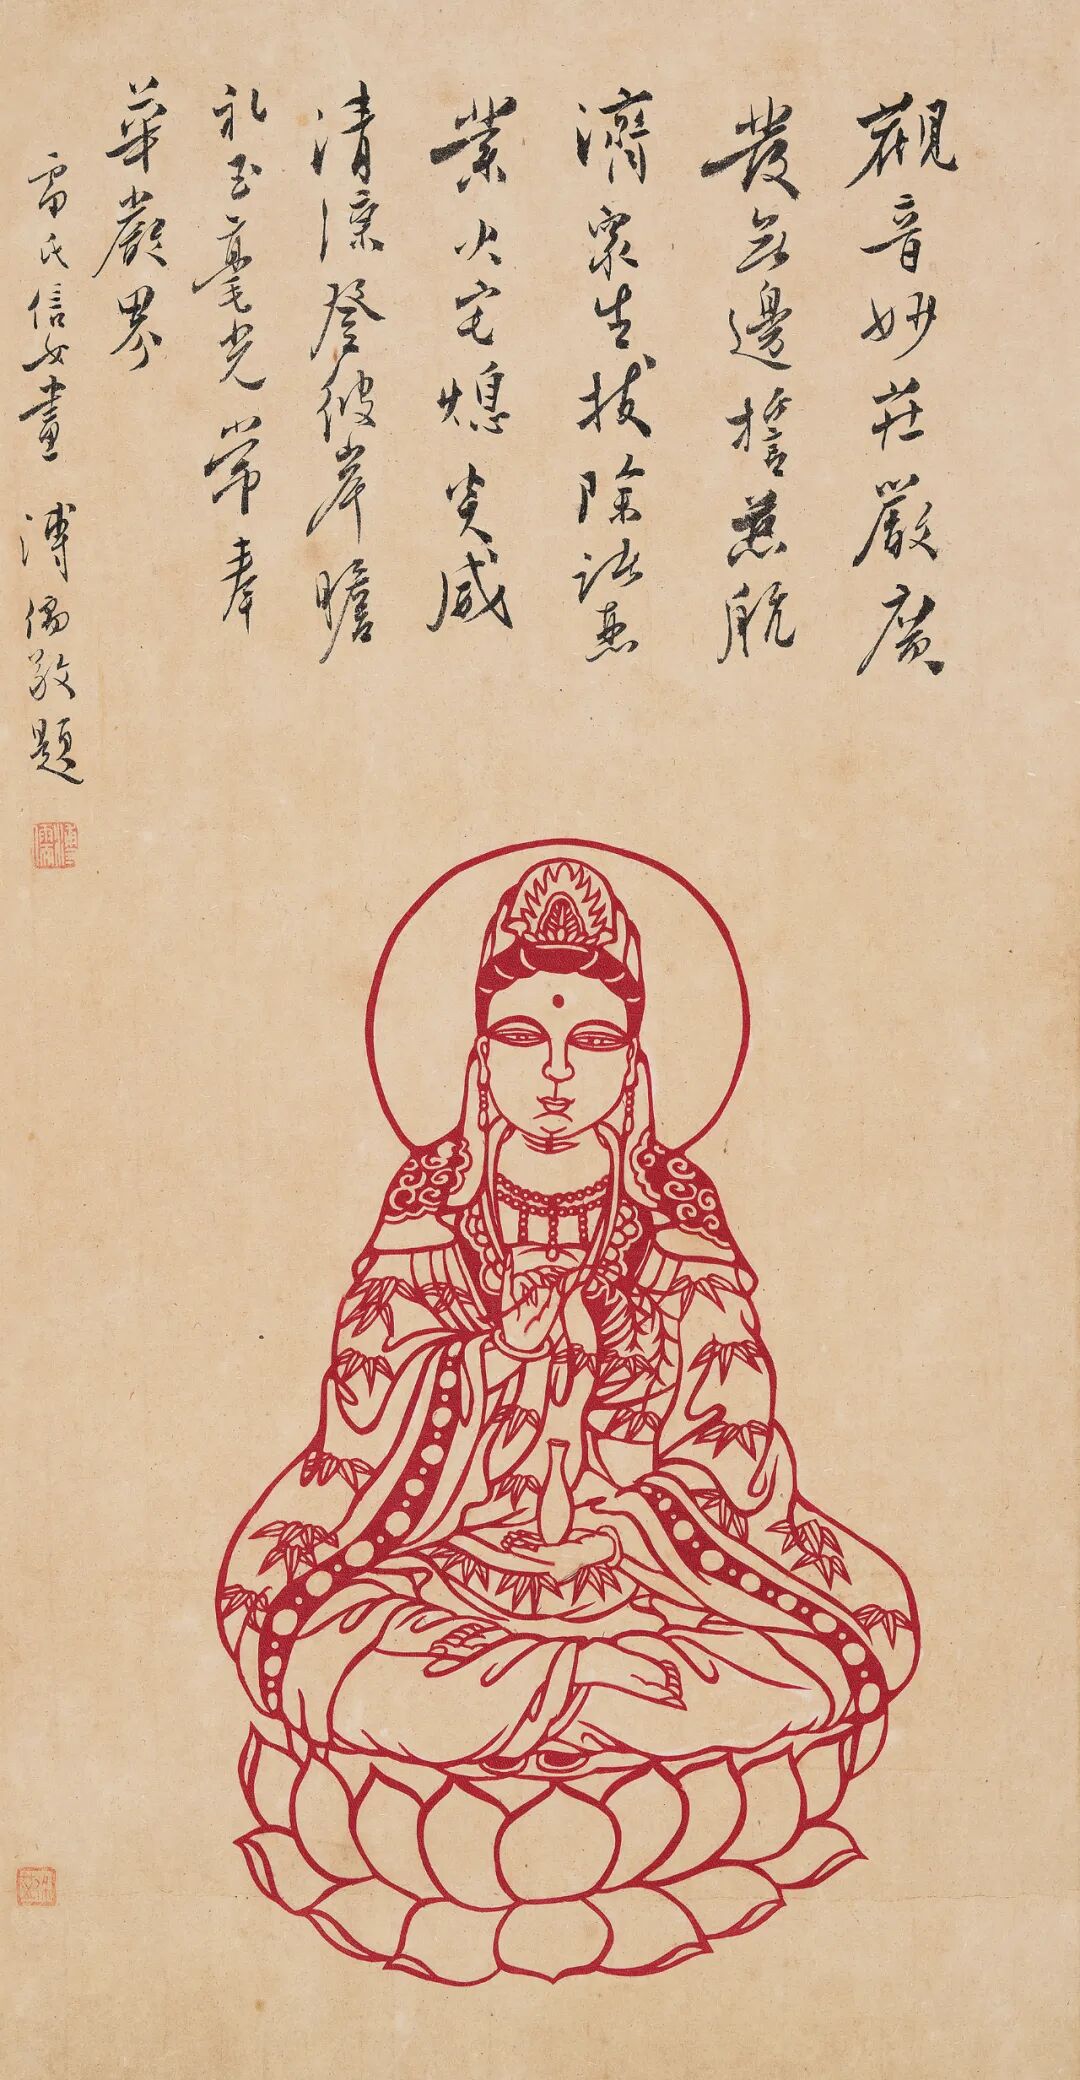 觀音妙莊嚴廣
發無邊誓慈航
濟眾生拔除諸惡
業火宅熄炎威
清涼登彼岸瞻
礼玉毫光常奉
華嚴界
雷氏信女畫 溥儒敬題
溥儒